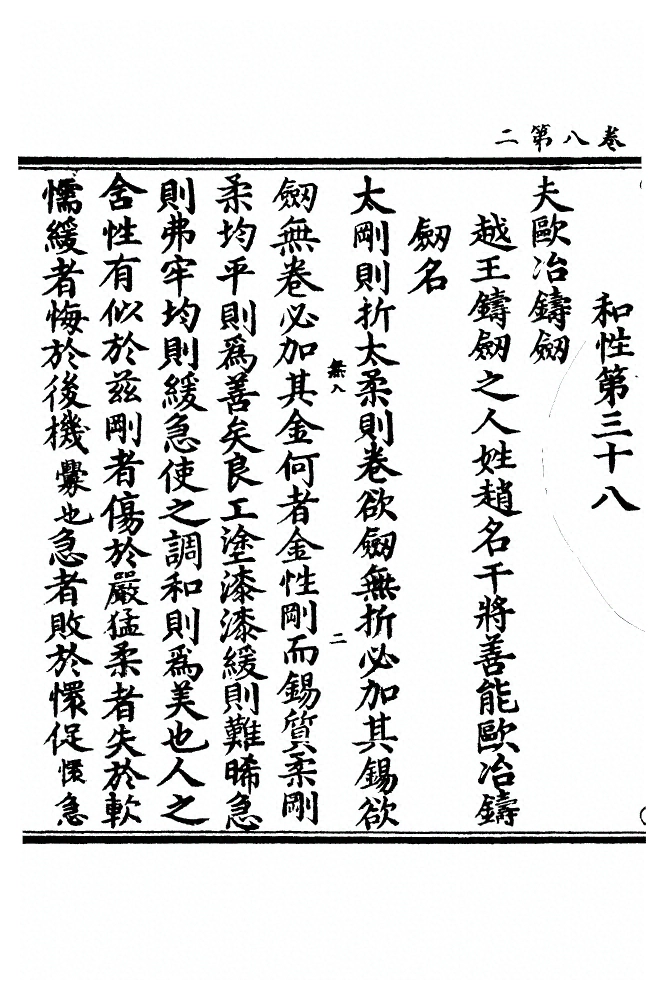 卷八第二
和性第三十八
夫歐冶鑄劒
越王鑄劒之人姓趙名干將善能歐冶鑄
劒名
太剛則折太柔則卷欲劒無折必加其錫欲
無八
二
劒無卷必加其金何者金性剛而錫質柔剛
柔均平則爲善矣良工塗漆漆緩則難晞急
則弗牢均則緩急使之調和則爲美也人之
含性有似於兹剛者傷於嚴猛柔者失於軟
懦緩者悔於後機釁也急者敗於懁促懁急